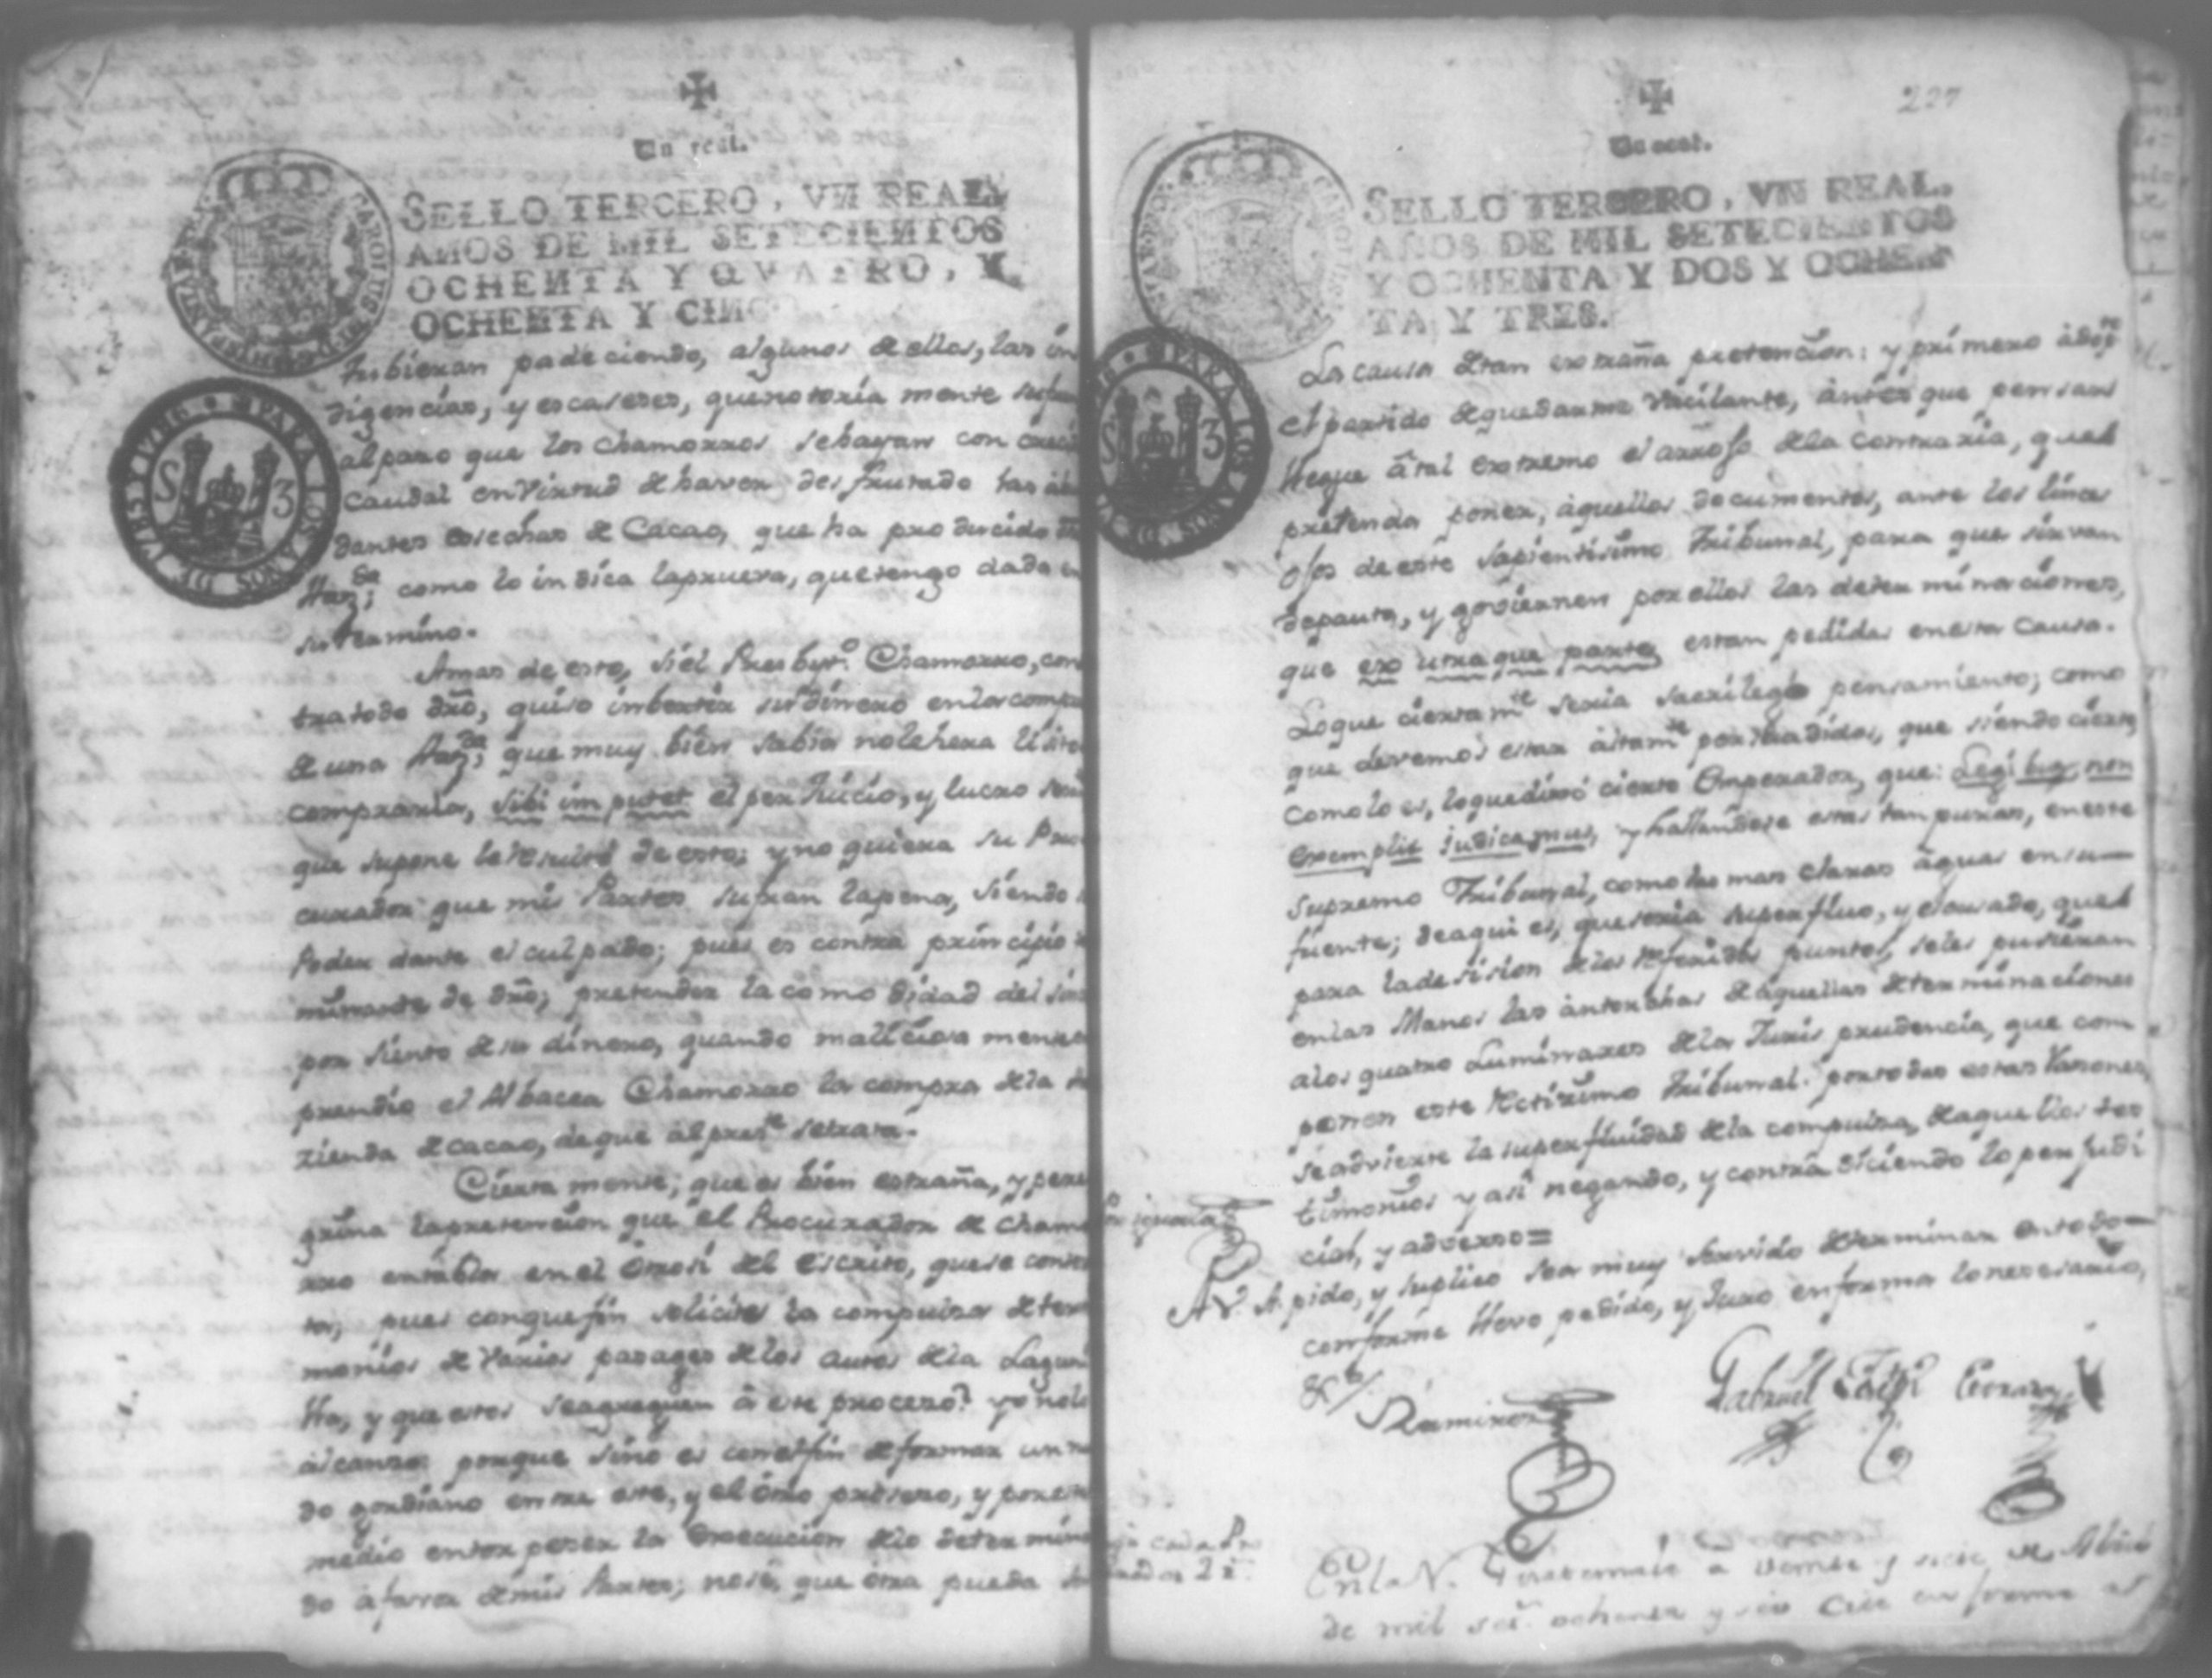 Un real.
SELLO TERCERO, VN REAL
AÑOS DE MIL SETECIENTOS
OCHENTA Y QVATRO, Y
OCHENTA Y CINC
CAROLUS III D G HISPANIAR
PARA LOS AÑOS DE 178
S 3
hubieran padeciendo, algunos de ellos, las in
digencias, y escaseses, que notoria mente
al paso que los Chamorros se hayan con
caudal en Virtud de haver desfrutado las
dantes cosechas de Cacao, que ha producido
Hazda; como lo indica la prueva, que tengo dada en
su termino.
Amas de esto, si el Presbyto. Chamorro, con
tra todo dro, quiso imbertir su dinero en la compra
de una Hazda; que muy bien sabia no le hera licito
comprarla, sibi imputet el perjuicio, y lucro
que supone le resulta de esto; y no quiera su Pro
curador que mis Partes sufran la pena, siendo
Poder dante el culpado; pues es contra principio
minante de dro; pretender la comodidad del
por siento de su dinero, quando maliciosa mente
prendio el Albacea Chamorro la compra de la
zienda de cacao, de que al preste se trata.
Cierta mente; que es bien estraña, y pere
grina la pretencion que el Procurador de Chamo
rro entabla en el Otrosi del Escrito, que se contes
ta; pues con que fin solicita la compulsa de testi
monios de varios parages de los autos de la Laguni
lla, y que estos se agreguen â este proceso? yo no lo
alcanzo: porque sino es con el fin de formar un nu
do gordiano entre este, y el otro proceso, y por este
medio entorpecer la Execucion de lo determina
do a favor de mis Partes; no sé, que otra pueda
Un real.
SELLO TERCERO, VN REAL,
AÑOS DE MIL SETECIENTOS
Y OCHENTA Y DOS Y OCHEN
TA Y TRES.
PARA LOS AÑOS DE
S 3
La causa de tan extraña pretencion: y primero
el partido de quedarme vacilante, antes que pensar
llegue â tal extremo el arrojo de la contraria, que
pretenda poner, aquellos documentos, ante los linces
ojos de este Sapientisimo Tribunal, para que sirvan
de pauta, y goviernen por ellos las determinaciones,
que ex utraque parte, estan pedidas en esta Causa.
Lo que ciertamte seria sacrilego pensamiento; como
que devemos estar altamte persuadidos, que siendo cierto,
como lo es, lo que dixo cierto Emperador, que: Legibus, non
exemplis judicamus, y hallandose estas tan puras, en este
Supremo Tribunal, como las mas claras âguas en su
fuente; de aqui es, que seria superfluo, y escusado, que
para la desision de los referidos puntos, se les pusieran
en las Manos las antorchas de aquellas determinaciones
a los quatro Luminares de la Juris prudencia, que com
ponen este rectisimo Tribunal. por todas estas razones,
se advierte la superfluidad de la compulsa, de aquellos tes
timonios y asi negando, y contra diciendo lo perjudi
cial, y adverso=
A V. A. pido, y suplico sea muy servido determinar en todo
conforme llevo pedido, y Juro en forma lo necesario,
&a/
Ramirez
Gabriel
En la N. Guatemala a veinte y siete de Abril
de mil sets. ochenta y seis Cité en forma al